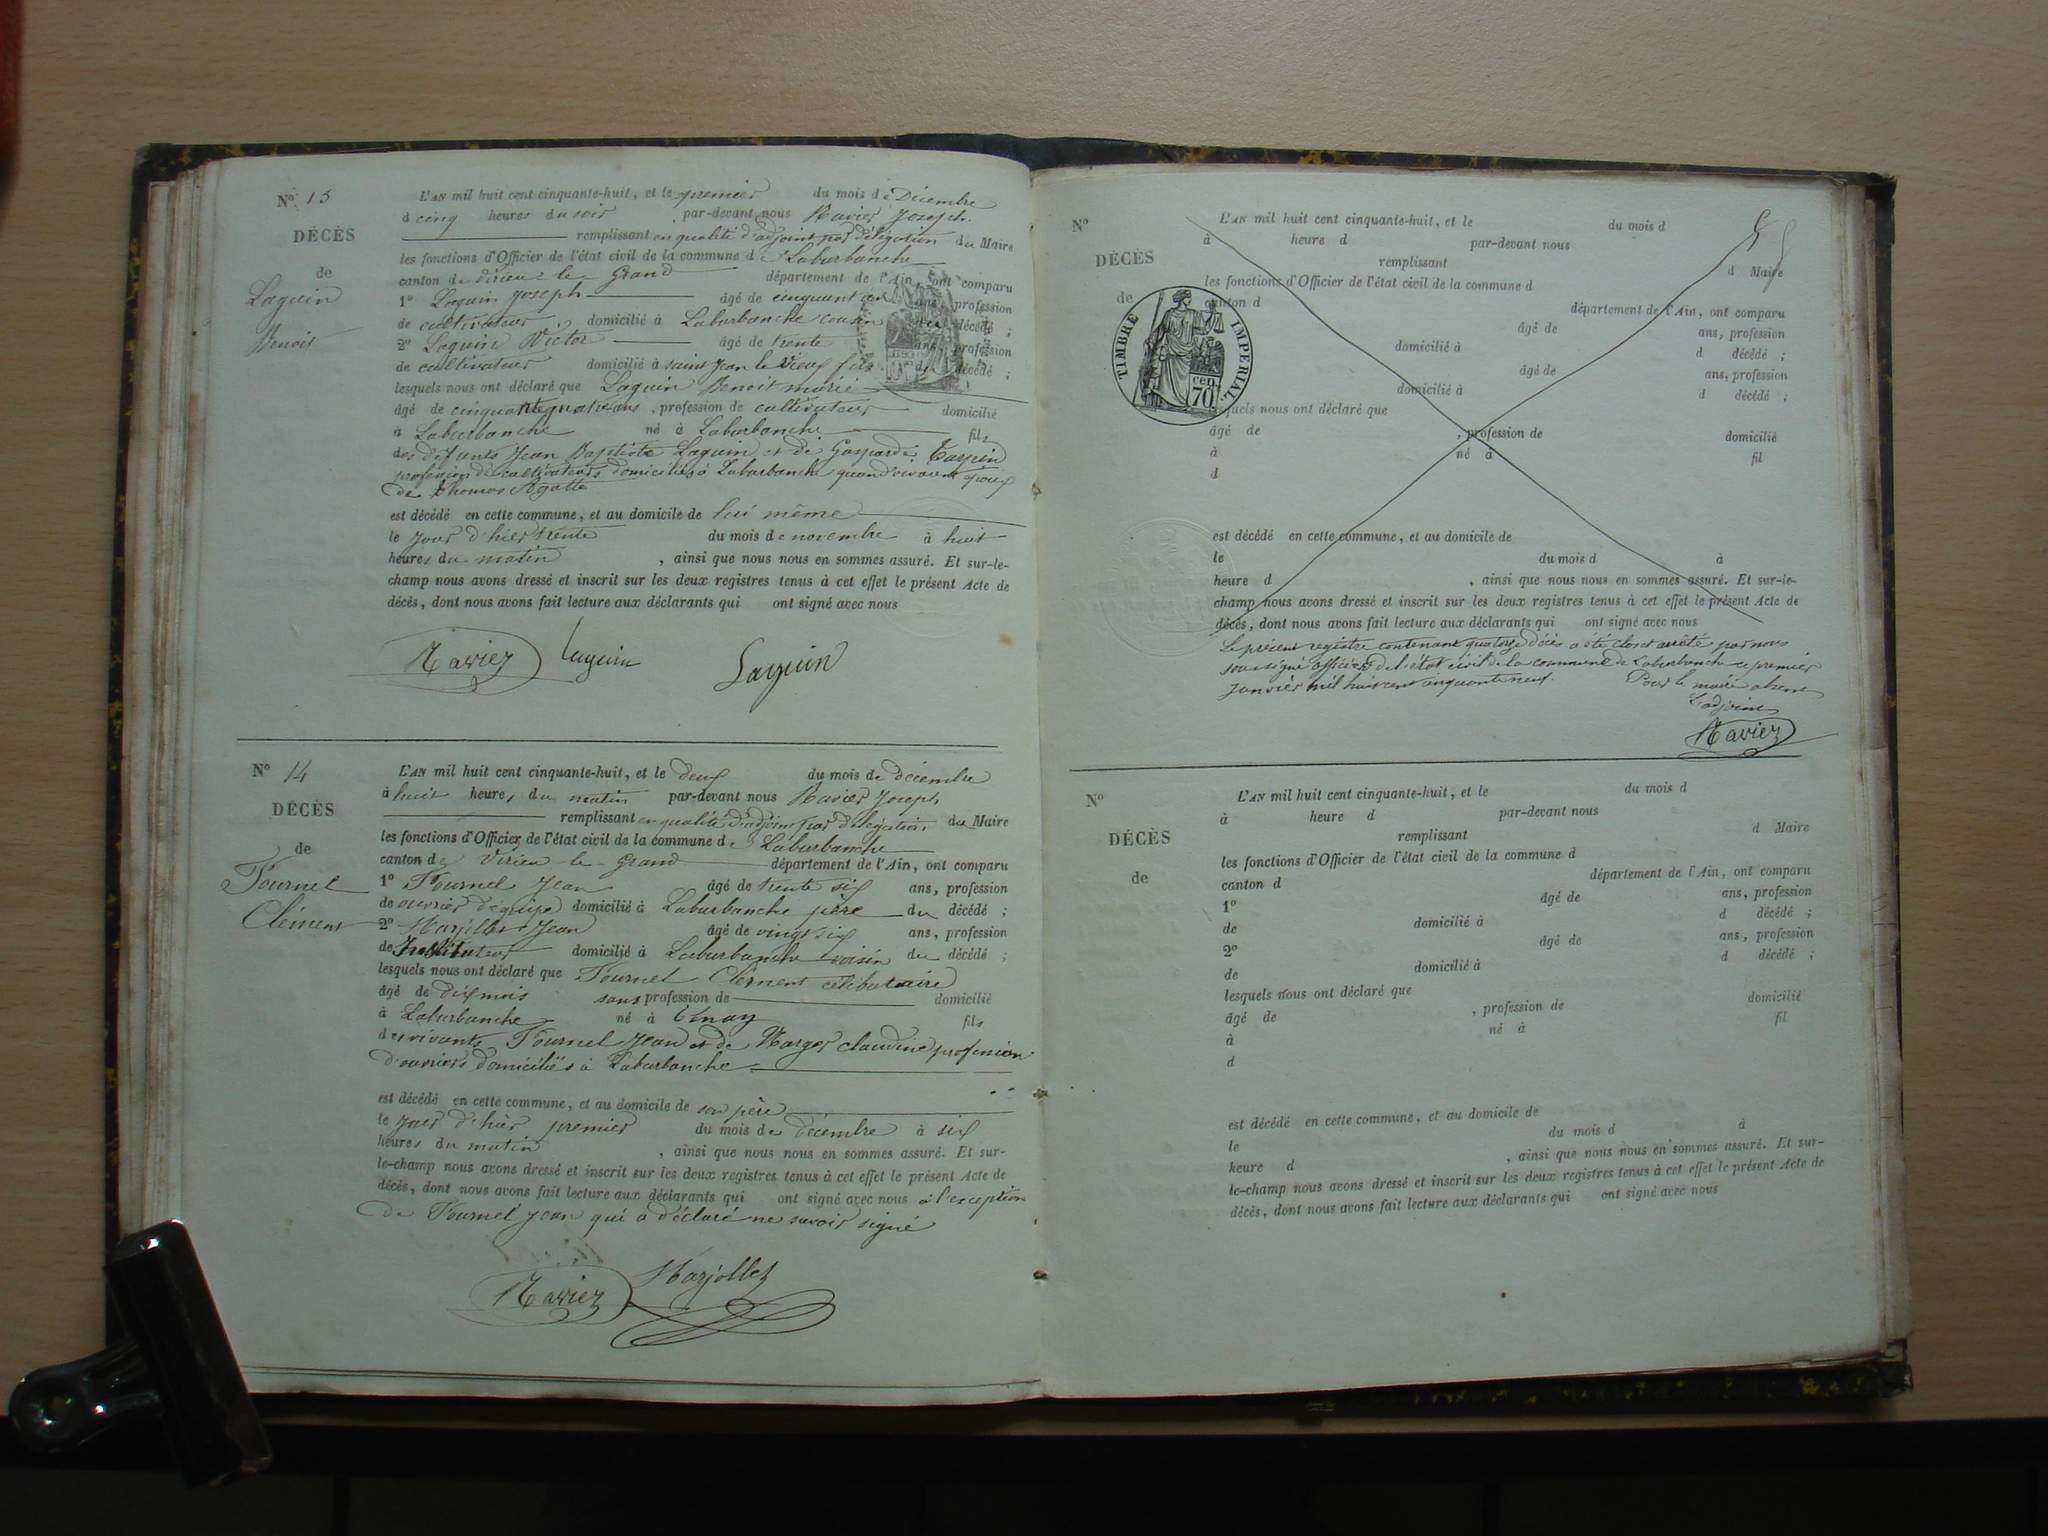 N° 13
DÉCÈS
de
Laguin
Benoit
L'AN mil huit cent cinquante-huit, et le premier du mois de Décembre
à cinq heures du soir par-devant nous Ravier Joseph
remplissant en qualité d'adjoint par délégation du Maire
les fonctions d'Officier de l'état civil de la commune de Laburbanche
canton de virieu le Grand département de l'Ain, ont comparu
1° Laguin Joseph âgé de cinquante ans, profession
de cultivateur domicilié à Laburbanche cousin du décédé ;
2° Laguin Victor âgé de trente ans, profession
de cultivateur domicilié à saint Jean le Vieux fils du décédé ;
lesquels nous ont déclaré que Laguin Benoit marié
âgé de cinquante quatre ans, profession de cultivateur domicilié
à Laburbanche né à Laburbanche fils
des défunts Jean Baptiste Laguin et de Gasparde Carrin
profession de cultivateurs domiciliés à Laburbanche quand vivaient époux
de thomas Agatte
est décédé en cette commune, et au domicile de lui même
le jour d'hier trente du mois de novembre à huit
heures du matin, ainsi que nous nous en sommes assuré. Et sur-le-
champ nous avons dressé et inscrit sur les deux registres tenus à cet effet le présent Acte de
décès, dont nous avons fait lecture aux déclarants qui ont signé avec nous
Ravier Laguin Laguin
N° 14
DÉCÈS
de
Fournel
Clément
L'AN mil huit cent cinquante-huit, et le deux du mois de décembre
à huit heures du matin par-devant nous Ravier Joseph
remplissant en qualité d'adjoint par délégation du Maire
les fonctions d'Officier de l'état civil de la commune de Laburbanche
canton de Virieu le Grand département de l'Ain, ont comparu
1° Fournel Jean âgé de trente six ans, profession
de ouvrier d'équipe domicilié à Laburbanche père du décédé ;
2° Marjollet Jean âgé de vingt six ans, profession
de Instituteur domicilié à Laburbanche voisin du décédé ;
lesquels nous ont déclaré que Fournel Clément célibataire
âgé de dix mois sans profession de domicilié
à Laburbanche né à tenay fils
des vivants Fournel Jean et de Marger claudine profession
d'ouvriers domiciliés à Laburbanche
est décédé en cette commune, et au domicile de son père
le jour d'hier premier du mois de décembre à six
heures du matin, ainsi que nous nous en sommes assuré. Et sur-
le-champ nous avons dressé et inscrit sur les deux registres tenus à cet effet le présent Acte de
décès, dont nous avons fait lecture aux déclarants qui ont signé avec nous à l'exception
de Fournel Jean qui a déclaré ne savoir signé
Ravier Marjollet
N°
DÉCÈS
de
TIMBRE IMPERIAL
70 cen.
L'AN mil huit cent cinquante-huit, et le du mois d
à heure d par-devant nous
remplissant d Maire
les fonctions d'Officier de l'état civil de la commune d
canton d département de l'Ain, ont comparu
âgé de ans, profession
domicilié à d décédé ;
âgé de ans, profession
domicilié à d décédé ;
lesquels nous ont déclaré que
âgé de , profession de domicilié
à né à fil
d
est décédé en cette commune, et au domicile de
le du mois d à
heure d , ainsi que nous nous en sommes assuré. Et sur-le-
champ nous avons dressé et inscrit sur les deux registres tenus à cet effet le présent Acte de
décès, dont nous avons fait lecture aux déclarants qui ont signé avec nous
Le présent registre contenant quatorze décès a été clos et arrêté par nous
soussigné officier de l'état civil de la commune de Laburbanche ce premier
janvier mil huit cent cinquante neuf. Pour le maire absent
L'adjoint
Ravier
N°
DÉCÈS
de
L'AN mil huit cent cinquante-huit, et le du mois d
à heure d par-devant nous
remplissant d Maire
les fonctions d'Officier de l'état civil de la commune d
canton d département de l'Ain, ont comparu
1° âgé de ans, profession
de domicilié à d décédé ;
2° âgé de ans, profession
de domicilié à d décédé ;
lesquels nous ont déclaré que
âgé de , profession de domicilié
à né à fil
d
est décédé en cette commune, et au domicile de
le du mois d à
heure d , ainsi que nous nous en sommes assuré. Et sur-
le-champ nous avons dressé et inscrit sur les deux registres tenus à cet effet le présent Acte de
décès, dont nous avons fait lecture aux déclarants qui ont signé avec nous